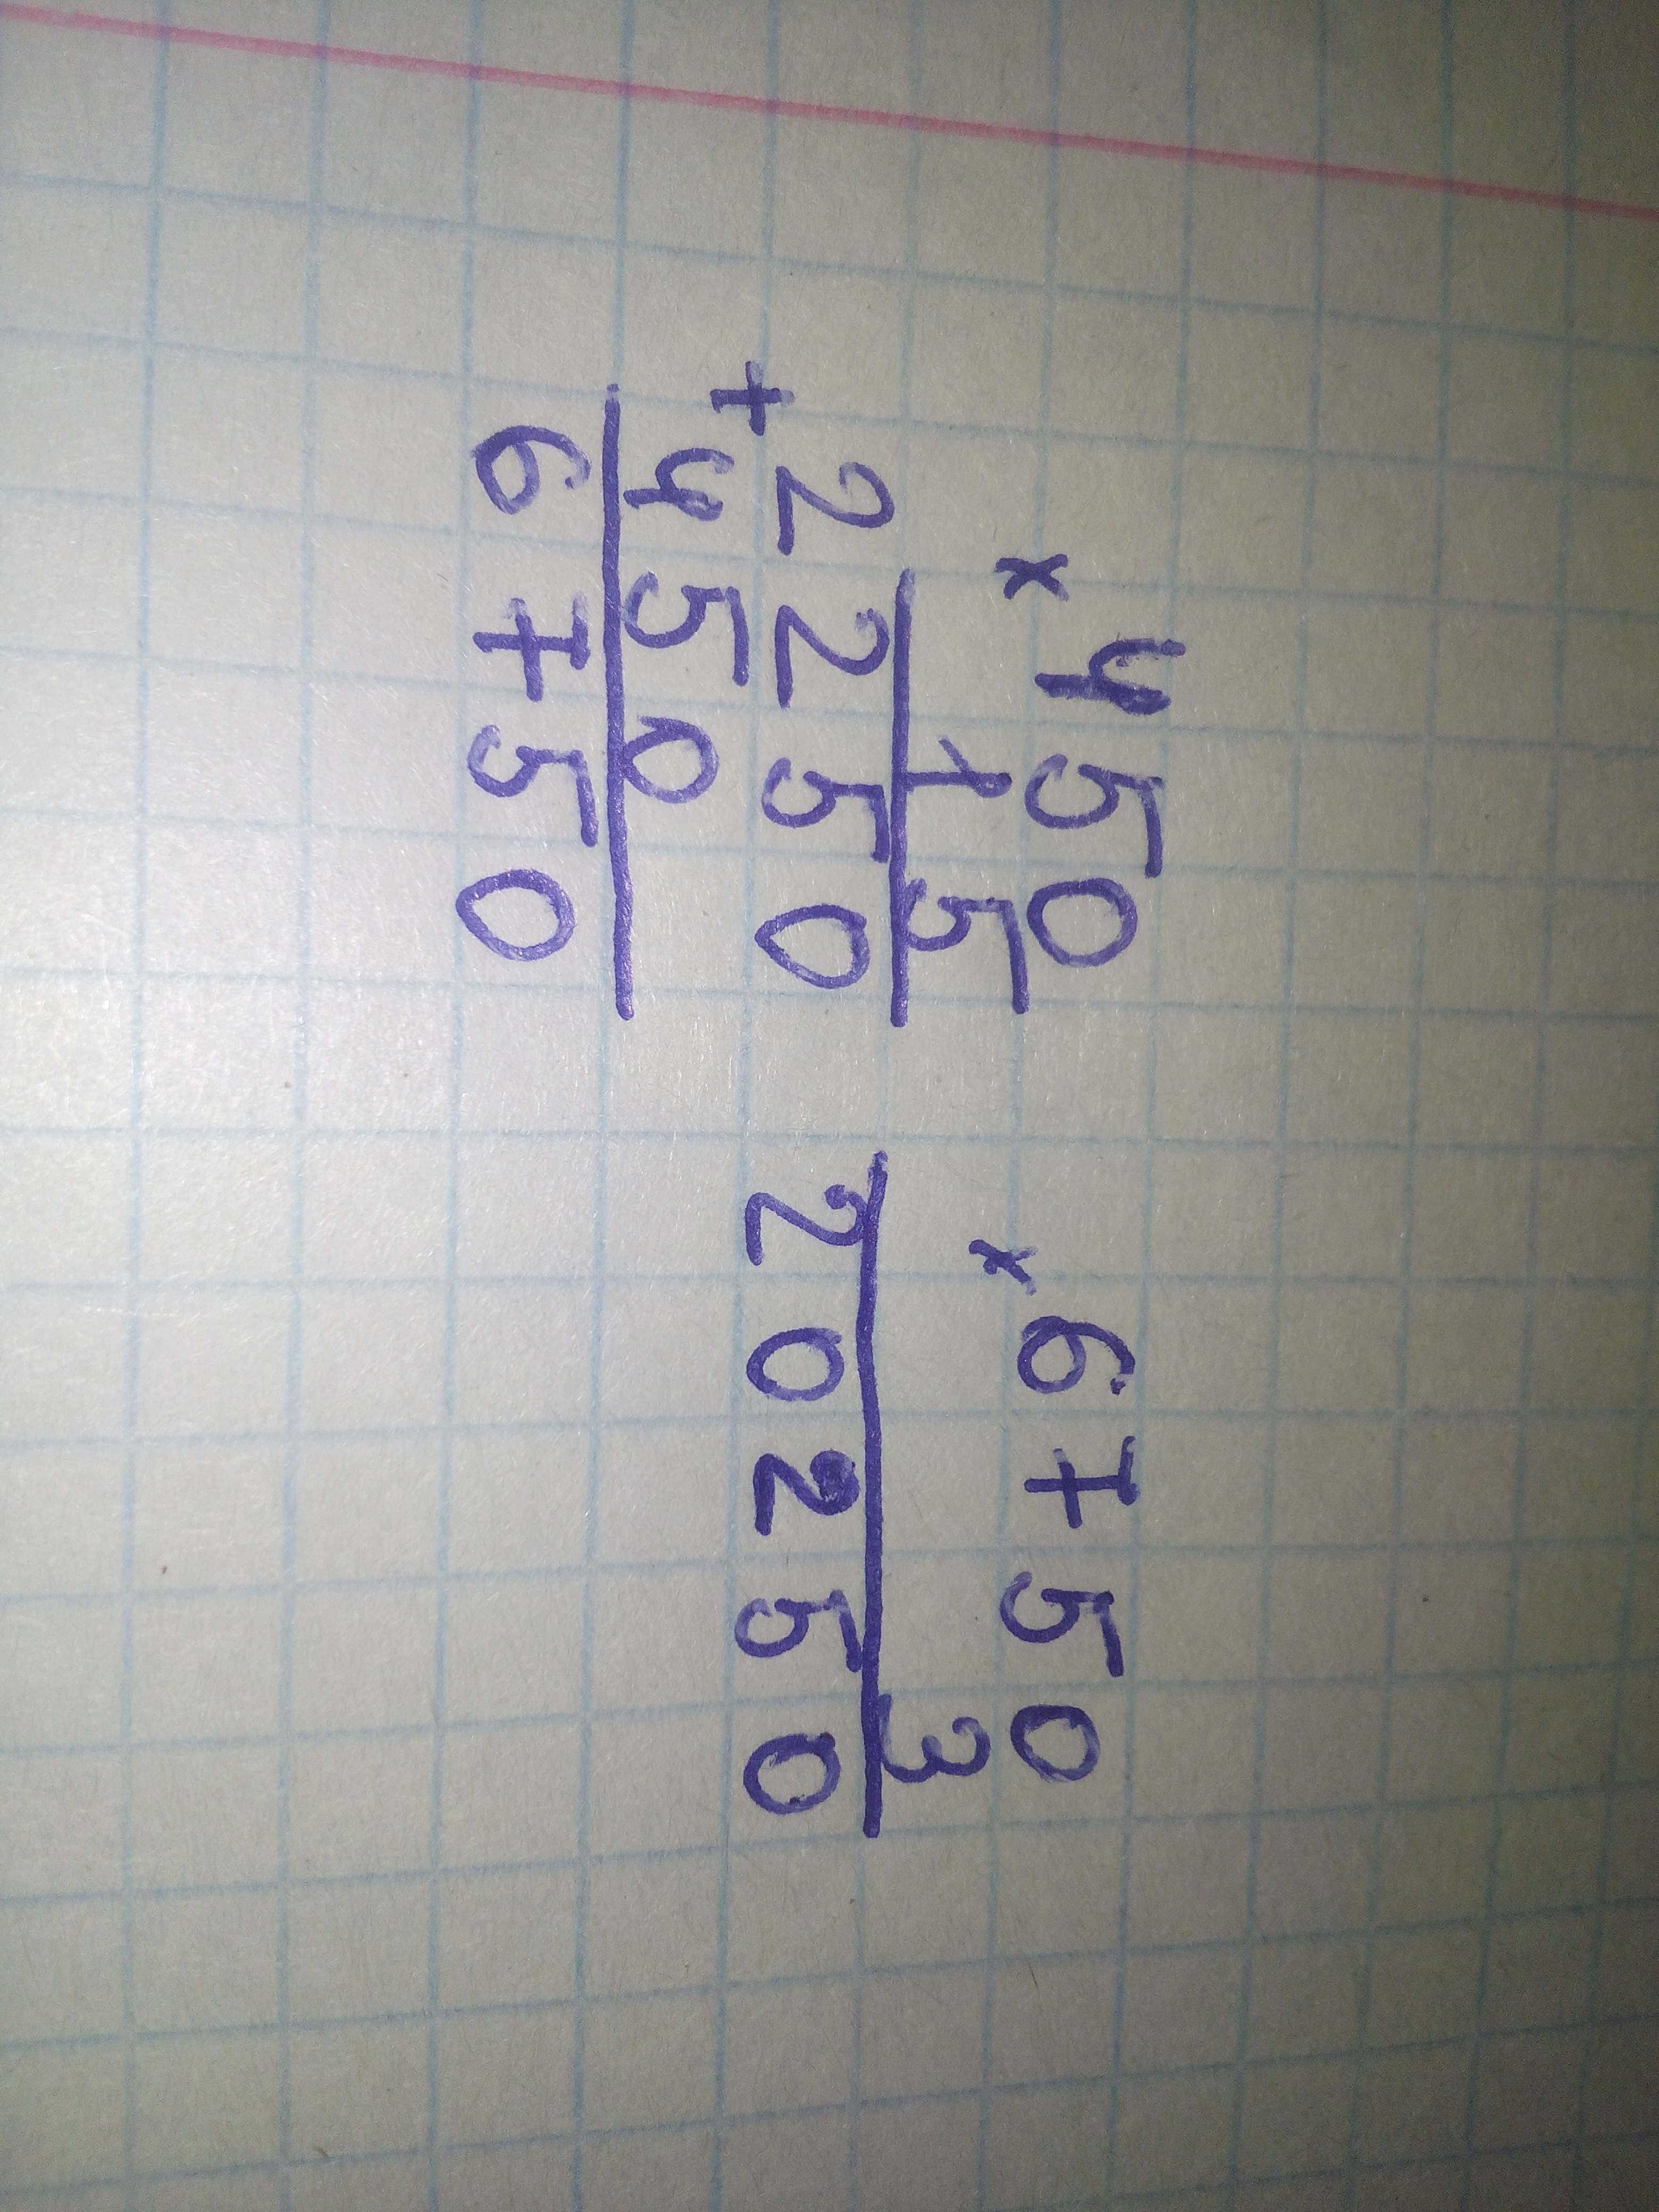 × 450
15
2250
+ 450
6750
× 6750
3
20250